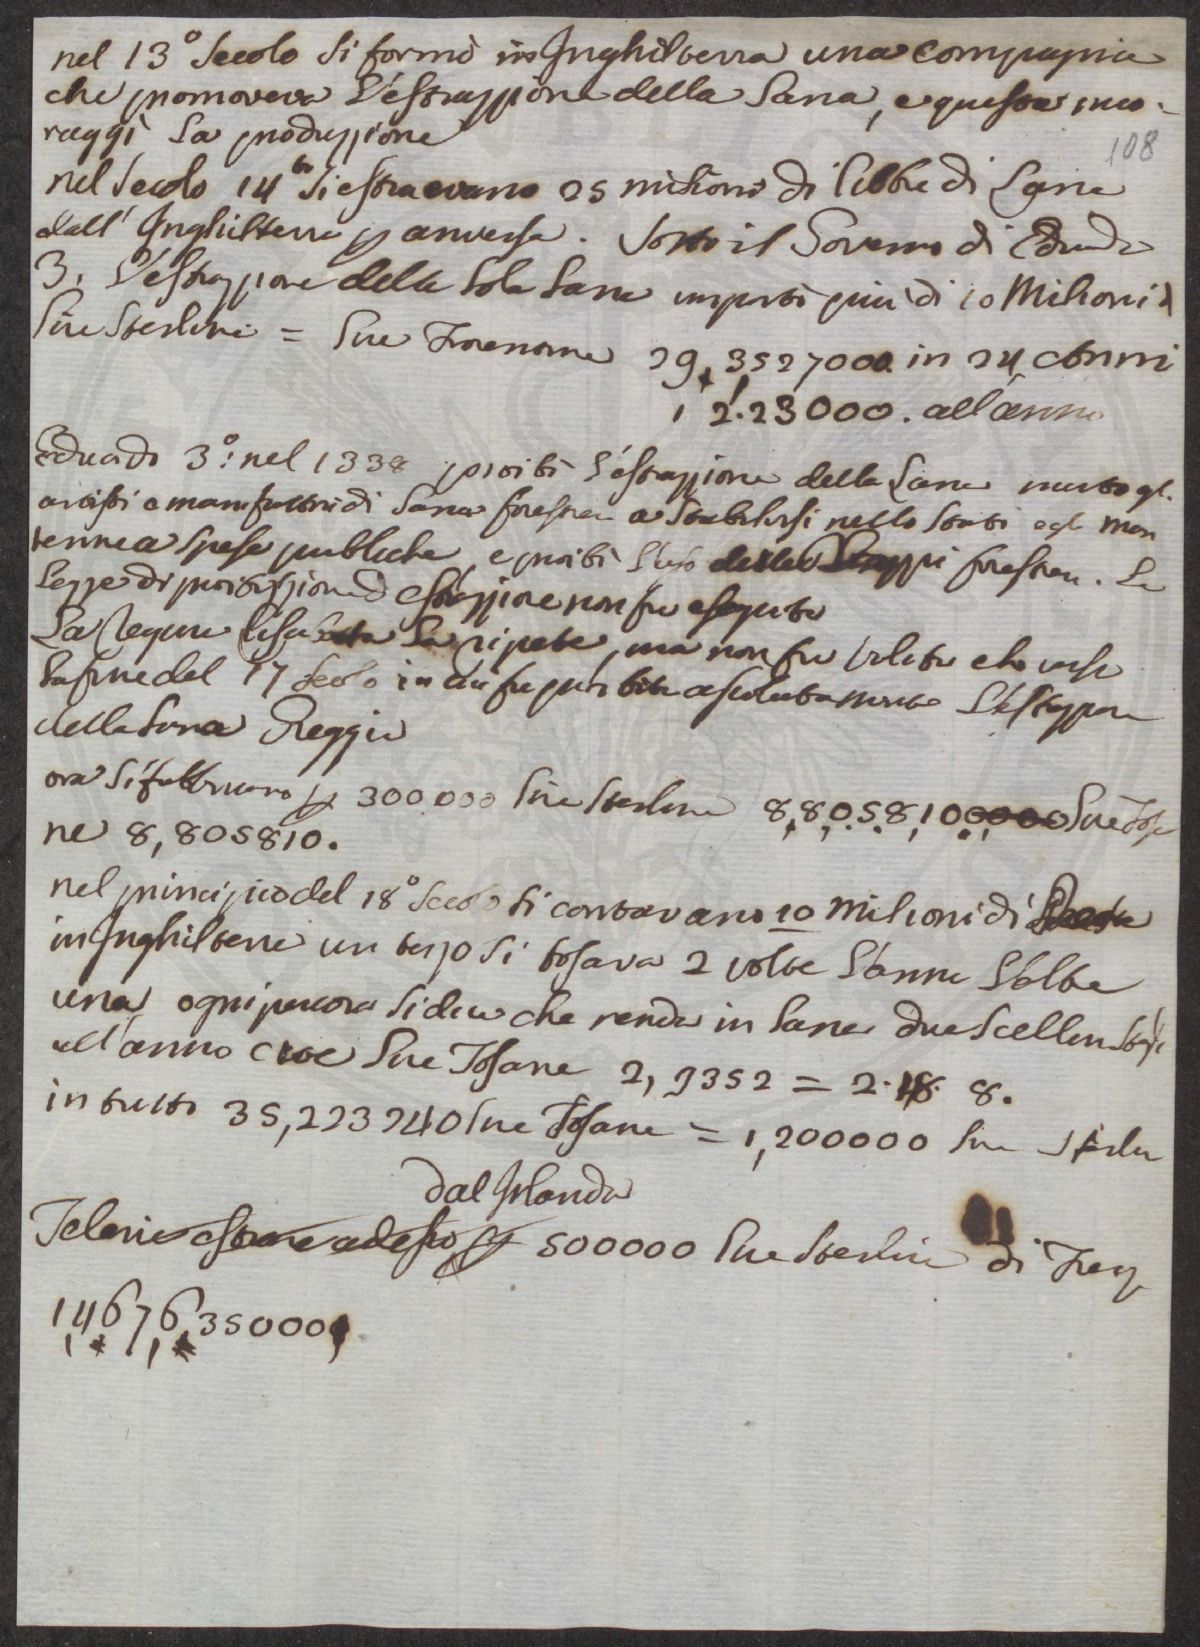 nel 13° Secolo si formò in Inghilterra una compagnia
che promoveva l'estrazzione della Lana, e questa inco-
raggì la produzzione
108
nel secolo 14to si estraevano 25 milioni di libbre di Lana
dall'Inghilterra p anversa. Sotto il Governo di Eduardo
3. l'estrazzione della sola Lana importò più di 10 Milioni d
Lire Sterline = Lire 29,3527000 in 24 Anni
1 2.23000. all'anno
Eduardo 3°: nel 1338 proibì l'estrazzione della Lana gl.
artisti e manifattori di Lana forestieri a stabilirsi nello Stato egli man
tenne a spese pubbliche, e proibì l'uso delle Drappi forestieri. La
Legge di proibizzione d estrazzione non fu eseguita
La Regina Lisabetta la ripetè, ma non fu che verso
la fine del 17 Secolo in cui fu proibita assolutamente l'estrazzione
della Lana Greggia
ora si fabbricano p 300000 Lire Sterline 8,805810000 Lire Tosca
ne 8,805810.
nel principio del 18° Secolo si contavano 10 Milioni di
in Inghilterra un terzo si tosava 2 volte l'anno l'altre
una, ogni pecora si dice che renda in Lana due Scellini
all'anno cioè Lire Tosane 2,9352 = 2.18. 8.
in tutto 35,223240 Lire Tosane = 1,200000 Lire Sterlin
dal Irlanda
Telerie estrae adesso p 500000 Lire Sterline di
14676350000